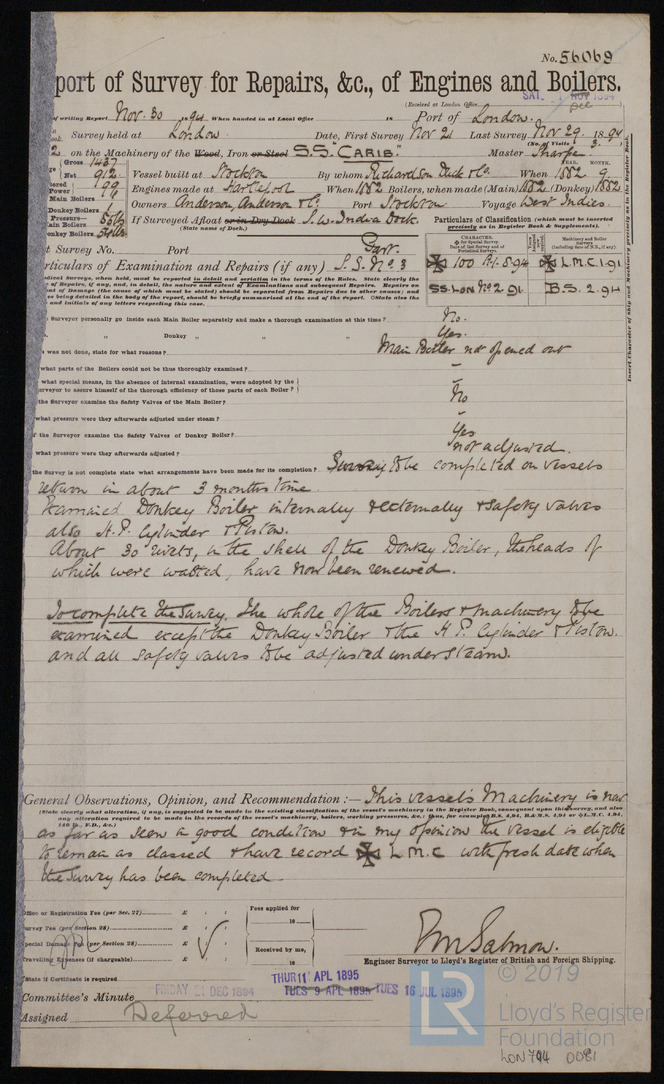 No. 56069
port of Survey for Repairs, &c., of Engines and Boilers.
(Received at London Office
SAT. 1 1894
of writing Report Nov. 30 94 When handed in at Local Office 18 Port of London.
Survey held at London Date, First Survey Nov 21 Last Survey Nov 29 1894
(No. of Visits 3.)
on the Machinery of the Wood, Iron or Steel S.S. "CARIB." Master Sharpe
Gross 1437
Net 912
Vessel built at Stockton By whom Richardson Duck & Co. When 1882 9
YEAR. MONTH.
Power 99
Engines made at Hartlepool When 1882 Boilers, when made (Main) 1882 (Donkey) 1882
Main Boilers
Owners Anderson, Anderson & Co. Port Stockton Voyage West Indies
Donkey Boilers
Pressure—
ain Boilers
onkey Boilers
If Surveyed Afloat or in Dry Dock S.W. India Dock.
(State name of Dock.)
Particulars of Classification (which must be inserted
precisely as in Register Book & Supplements).
t Survey No. Port
Part.
rticulars of Examination and Repairs (if any) S.S. No 3
CHARACTER.
Machinery and Boiler
100 A1. 5.94 L.M.C. 1.91
SS. LON No 2 91 B.S. 2.94
Insert Character of Ship and Machinery precisely as in the Register Book
Surveyor personally go inside each Main Boiler separately and make a thorough examination at this time? No.
" " Donkey " " " Yes.
was not done, state for what reasons? Main Boiler not opened out
what parts of the Boilers could not be thus thoroughly examined? –
what special means, in the absence of internal examination, were adopted by the
urveyor to assure himself of the thorough efficiency of those parts of each Boiler? –
the Surveyor examine the Safety Valves of the Main Boiler? No
what pressure were they afterwards adjusted under steam? –
f the Surveyor examine the Safety Valves of Donkey Boiler? Yes
what pressure were they afterwards adjusted? not adjusted.
the Survey is not complete state what arrangements have been made for its completion? Survey to be completed on vessels
return in about 3 months time.
Examined Donkey Boiler internally & externally & safety valves
also H.P. Cylinder & Piston.
About 30 rivets, in the shell of the Donkey Boiler, the heads of
which were wasted, have now been renewed.
To complete the Survey. The whole of the Boilers & machinery to be
examined except the Donkey Boiler & the H.P. Cylinder & Piston.
and all safety valves to be adjusted under steam.
General Observations, Opinion, and Recommendation:— This vessel's Machinery is now
(State clearly what alteration, if any, is suggested to be made in the existing classification of the vessel's machinery in the Register Book, consequent upon this survey, and also
any alteration required to be made in the records of the vessel's machinery, boilers, working pressures, &c.; thus, for example, B.S. 4,94, B.&M.S. 4,94 or L.M.C. 4,94,
140 lb., F.D., &c.)
as far as seen in good condition & in my opinion the vessel is eligible
to remain as classed & have record L.M.C with fresh date when
the Survey has been completed.
Office or Registration Fee (per Sec. 27) £ : :
Survey Fee (per Section 28) £ : :
Special Damage Fee (per Section 28) £ : :
Travelling Expenses (if chargeable) £ : :
Fees applied for
18
Received by me,
18
Salmon.
Engineer Surveyor to Lloyd's Register of British and Foreign Shipping.
State if Certificate is required
Committee's Minute FRIDAY 21 DEC 1894
THUR 11 APL 1895
TUES 9 APL 1895
TUES 16 JUL 1895
Assigned Deferred
© 2019
LR
Lloyd's Register
Foundation
LON 794 0081